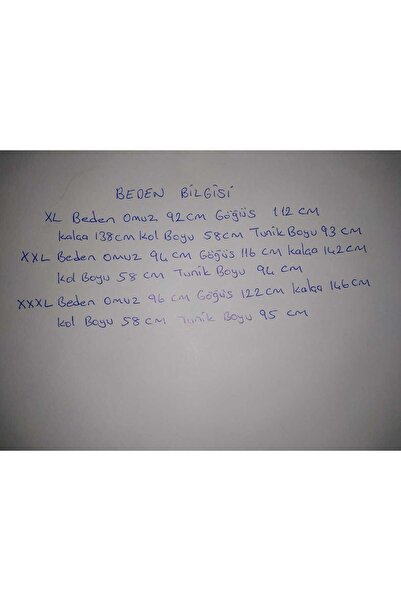 BEDEN BİLGİSİ
XL Beden Omuz 92 cm Göğüs 112 cm
kalça 138cm Kol Boyu 58cm Tunik Boyu 93 cm
XXL Beden Omuz 94 cm Göğüs 116 cm kalça 142cm
kol Boyu 58 cm Tunik Boyu 94 cm
XXXL Beden Omuz 96 cm Göğüs 122cm kalça 146cm
kol Boyu 58 cm Tunik Boyu 95 cm